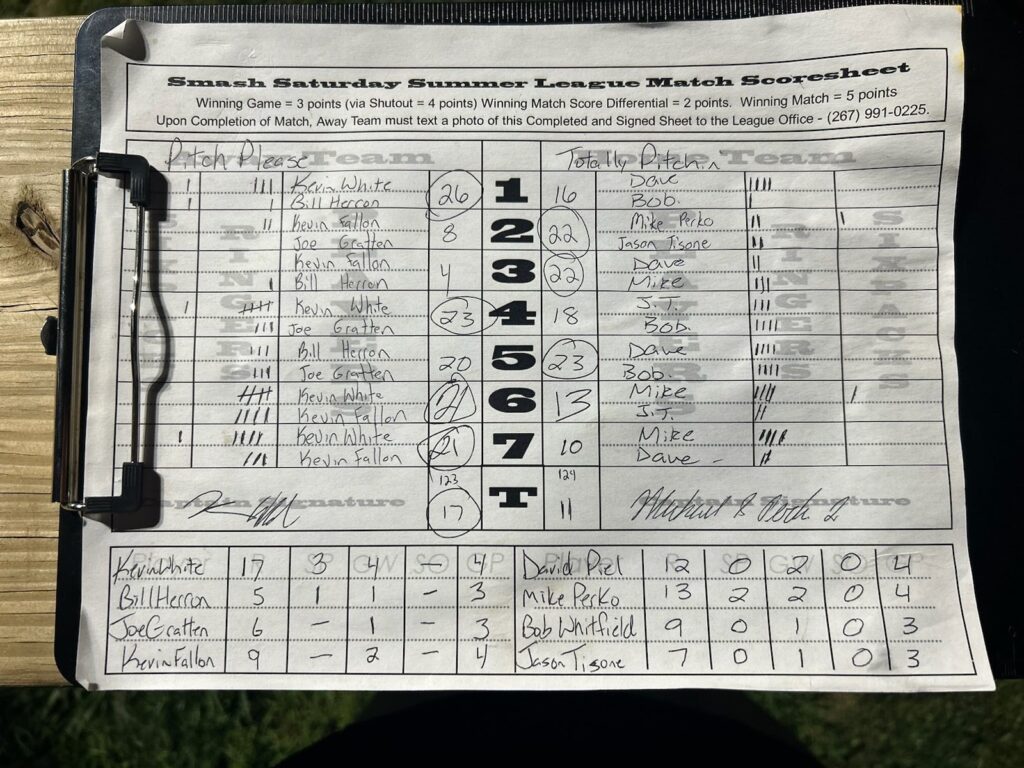 Smash Saturday Summer League Match Scoresheet
Winning Game = 3 points (via Shutout = 4 points) Winning Match Score Differential = 2 points. Winning Match = 5 points
Upon Completion of Match, Away Team must text a photo of this Completed and Signed Sheet to the League Office - (267) 991-0225.
Pitch Please Team Totally Pitchin Home Team
I III Kevin White 26 1 16 Dave IIII
I I Bill Herron Bob. I
II Kevin Fallon 8 2 22 Mike Perko II I
Joe Gratten Jason Tisone II
Kevin Fallon 4 3 22 Dave II
I Bill Herron Mike III
I IIII Kevin White 23 4 18 J.T. III
III Joe Gratten Bob. IIII
III Bill Herron 20 5 23 Dave IIII
III Joe Gratten Bob. IIII
IIII Kevin White 21 6 13 Mike IIII I
IIII Kevin Fallon J.T. II
I IIII Kevin White 21 7 10 Mike IIII
III Kevin Fallon Dave - II
123 T 124
17 11
Captain Signature Captain Signature
Player R SP GW SO GP Player R SP GW SO GP
Kevin White 17 3 4 - 4 David Piel 12 0 2 0 4
Bill Herron 5 1 1 - 3 Mike Perko 13 2 2 0 4
Joe Gratten 6 - 1 - 3 Bob Whitfield 9 0 1 0 3
Kevin Fallon 9 - 2 - 4 Jason Tisone 7 0 1 0 3